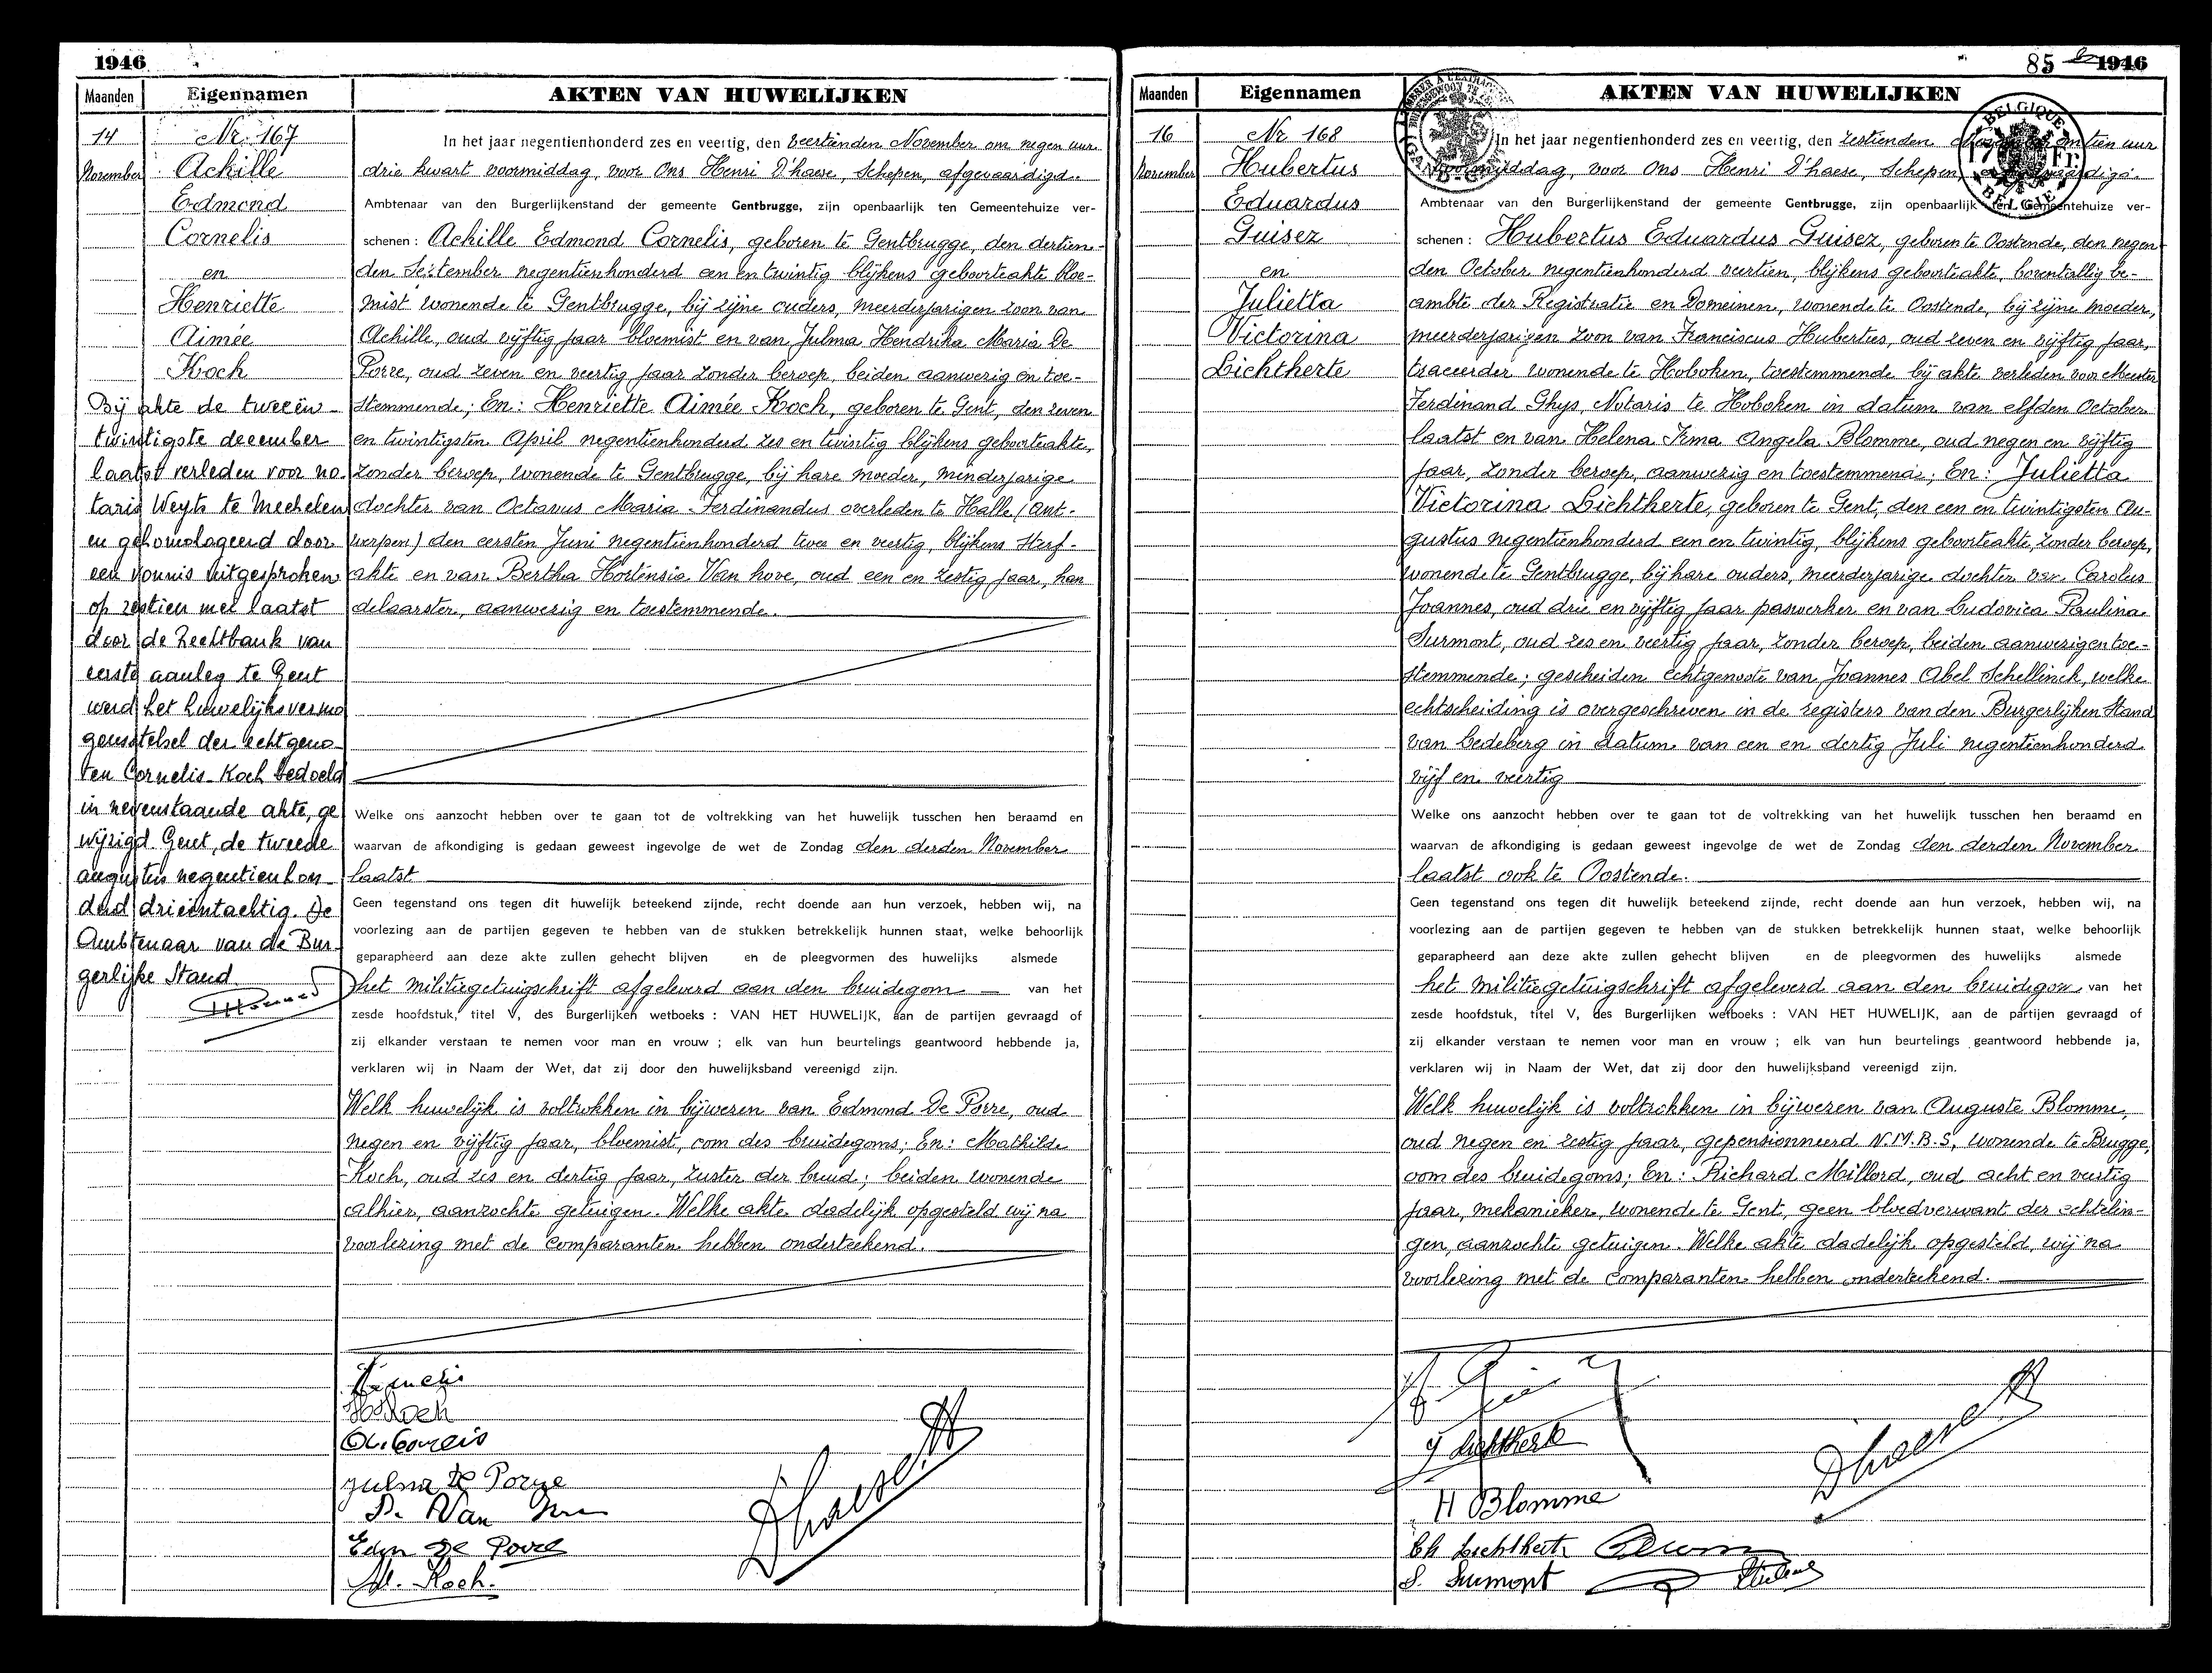 1946
Maanden Eigennamen AKTEN VAN HUWELIJKEN
14 November
Nr. 167
Achille
Edmond
Cornelis
en
Henriette
Aimée
Koch
Bij akte de tweeën-
twintigste december
laatst verleden voor no-
taris Weyts te Mechelen
en gehomologeerd door
een vonnis uitgesproken
op zestien mei laatst
door de Rechtbank van
eerste aanleg te Gent
werd het huwelijksvermo
gensstelsel der echtgeno-
ten Cornelis-Koch bedoeld
in nevenstaande akte, ge
wijzigd. Gent, de tweede
augustus negentienhon-
derd drieëntachtig. De
Ambtenaar van de Bur-
gerlijke Stand
In het jaar negentienhonderd zes en veertig, den veertienden November om negen uur
drie kwart voormiddag, voor Ons Henri D'haese, Schepen, afgevaardigde
Ambtenaar van den Burgerlijkenstand der gemeente Gentbrugge, zijn openbaarlijk ten Gemeentehuize ver-
schenen : Achille Edmond Cornelis, geboren te Gentbrugge, den dertien-
den September negentienhonderd een en twintig blijkens geboorteakte bloe-
mist wonende te Gentbrugge, bij zijne ouders, meerderjarigen zoon van
Achille, oud vijftig jaar bloemist en van Julma Hendrika Maria De
Porre, oud zeven en veertig jaar zonder beroep, beiden aanwezig en toe-
stemmende; En: Henriette Aimée Koch, geboren te Gent, den zeven
en twintigsten April negentienhonderd zes en twintig blijkens geboorteakte,
zonder beroep, wonende te Gentbrugge, bij hare moeder, minderjarige
dochter van Octavus Maria Ferdinandus overleden te Halle (Ant-
werpen) den eersten Juni negentienhonderd twee en veertig, blijkens Sterf-
akte en van Bertha Hortensia Van hove, oud een en zestig jaar, han
delaarster, aanwezig en toestemmende.
Welke ons aanzocht hebben over te gaan tot de voltrekking van het huwelijk tusschen hen beraamd en
waarvan de afkondiging is gedaan geweest ingevolge de wet de Zondag den derden November
laatst
Geen tegenstand ons tegen dit huwelijk beteekend zijnde, recht doende aan hun verzoek, hebben wij, na
voorlezing aan de partijen gegeven te hebben van de stukken betrekkelijk hunnen staat, welke behoorlijk
geparapheerd aan deze akte zullen gehecht blijven en de pleegvormen des huwelijks alsmede
het militiegetuigschrift afgeleverd aan den bruidegom — van het
zesde hoofdstuk, titel V, des Burgerlijken wetboeks : VAN HET HUWELIJK, aan de partijen gevraagd of
zij elkander verstaan te nemen voor man en vrouw ; elk van hun beurtelings geantwoord hebbende ja,
verklaren wij in Naam der Wet, dat zij door den huwelijksband vereenigd zijn.
Welk huwelijk is voltrokken in bijwezen van Edmond De Porre, oud
negen en vijftig jaar, bloemist, oom des bruidegoms; En: Mathilde
Koch, oud zes en dertig jaar, zuster der bruid; beiden wonende
alhier, aanzochte getuigen. Welke akte dadelijk opgesteld wij na
voorlezing met de comparanten hebben onderteekend.
HKoch
Julma De Porre
Edm De Porre
M. Koch.
D'haese H
85 1946
Maanden Eigennamen AKTEN VAN HUWELIJKEN
BELGIQUE
17 Fr.
BELGIE
16 November
Nr 168
Hubertus
Eduardus
Guisez
en
Julietta
Victorina
Lichtherte
In het jaar negentienhonderd zes en veertig, den zestienden November om tien uur
voormiddag, voor Ons Henri D'haese, Schepen, afgevaardigd.
Ambtenaar van den Burgerlijkenstand der gemeente Gentbrugge, zijn openbaarlijk ten Gemeentehuize ver-
schenen : Hubertus Eduardus Guisez, geboren te Oostende, den negen-
den October negentienhonderd veertien, blijkens geboorteakte, boventallig be-
ambte der Registratie en Domeinen, wonende te Oostende, bij zijne moeder,
meerderjarigen zoon van Franciscus Hubertus, oud zeven en vijftig jaar,
traceerder wonende te Hoboken, toestemmende bij akte verleden voor Meester
Ferdinand Ghys, Notaris te Hoboken in datum van elfden October
laatst en van Helena Irma Angela Blomme, oud negen en vijftig
jaar, zonder beroep, aanwezig en toestemmend; En: Julietta
Victorina Lichtherte, geboren te Gent, den een en twintigsten Au-
gustus negentienhonderd een en twintig, blijkens geboorteakte, zonder beroep,
wonende te Gentbrugge, bij hare ouders, meerderjarige dochter van Carolus
Joannes, oud drie en vijftig jaar paswerker en van Ludovica Paulina
Surmont, oud zes en veertig jaar, zonder beroep, beiden aanwezig en toe-
stemmende; gescheiden echtgenoote van Joannes Abel Schellinck, welke
echtscheiding is overgeschreven in de registers van den Burgerlijken Stand
van Ledeberg in datum van een en dertig Juli negentienhonderd
vijf en veertig
Welke ons aanzocht hebben over te gaan tot de voltrekking van het huwelijk tusschen hen beraamd en
waarvan de afkondiging is gedaan geweest ingevolge de wet de Zondag den derden November
laatst ook te Oostende.
Geen tegenstand ons tegen dit huwelijk beteekend zijnde, recht doende aan hun verzoek, hebben wij, na
voorlezing aan de partijen gegeven te hebben van de stukken betrekkelijk hunnen staat, welke behoorlijk
geparapheerd aan deze akte zullen gehecht blijven en de pleegvormen des huwelijks alsmede
het militiegetuigschrift afgeleverd aan den bruidegom van het
zesde hoofdstuk, titel V, des Burgerlijken wetboeks : VAN HET HUWELIJK, aan de partijen gevraagd of
zij elkander verstaan te nemen voor man en vrouw ; elk van hun beurtelings geantwoord hebbende ja,
verklaren wij in Naam der Wet, dat zij door den huwelijksband vereenigd zijn.
Welk huwelijk is voltrokken in bijwezen van Auguste Blomme,
oud negen en zestig jaar, gepensionneerd N.M.B.S, wonende te Brugge,
oom des bruidegoms; En: Richard Millord, oud acht en veertig
jaar, mekanieker, wonende te Gent, geen bloedverwant der echtelin-
gen, aanzochte getuigen. Welke akte dadelijk opgesteld, wij na
voorlezing met de comparanten hebben onderteekend.
J Lichtherte
H Blomme
Ch Lichtherte
S. Surmont
D'haese H